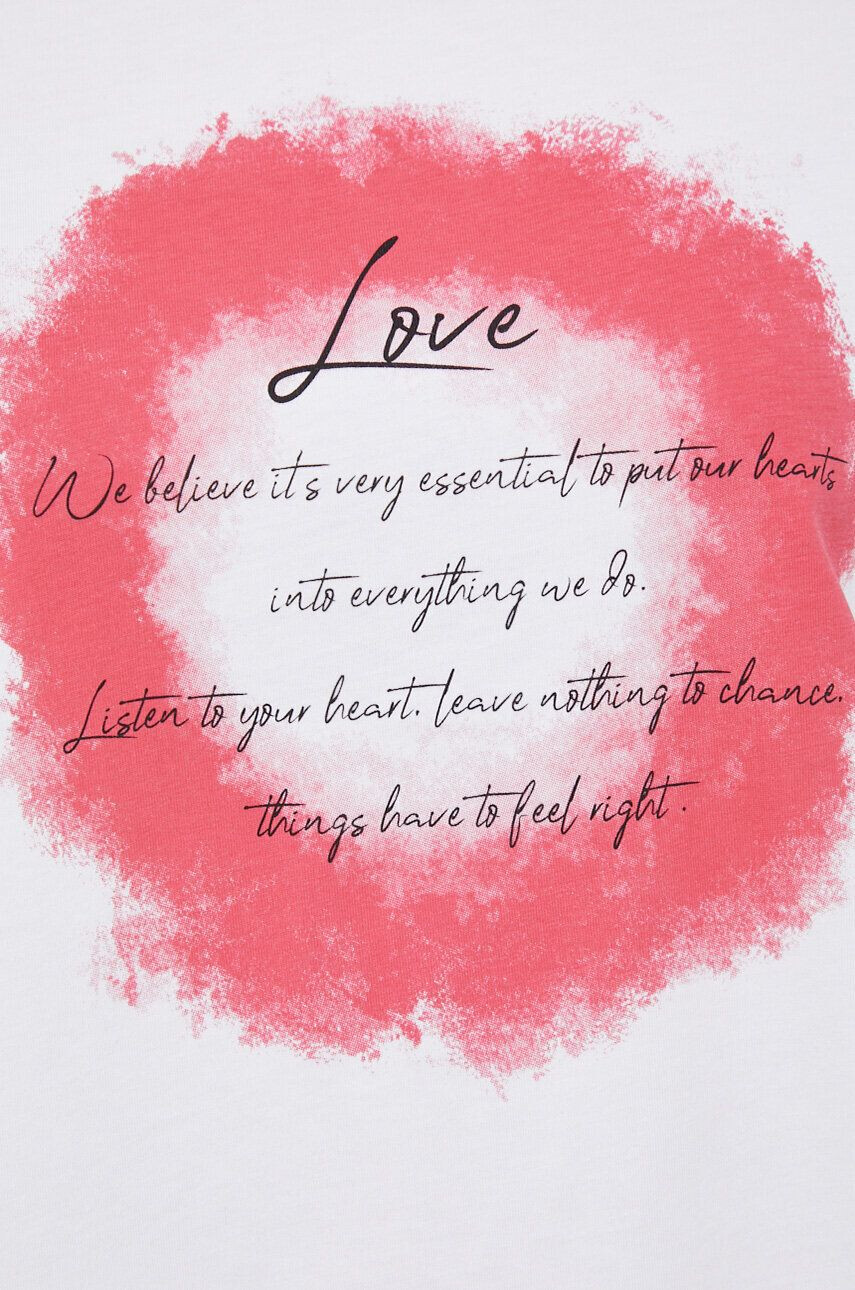 Love
We believe it's very essential to put our hearts
into everything we do.
Listen to your heart. leave nothing to chance.
things have to feel right.